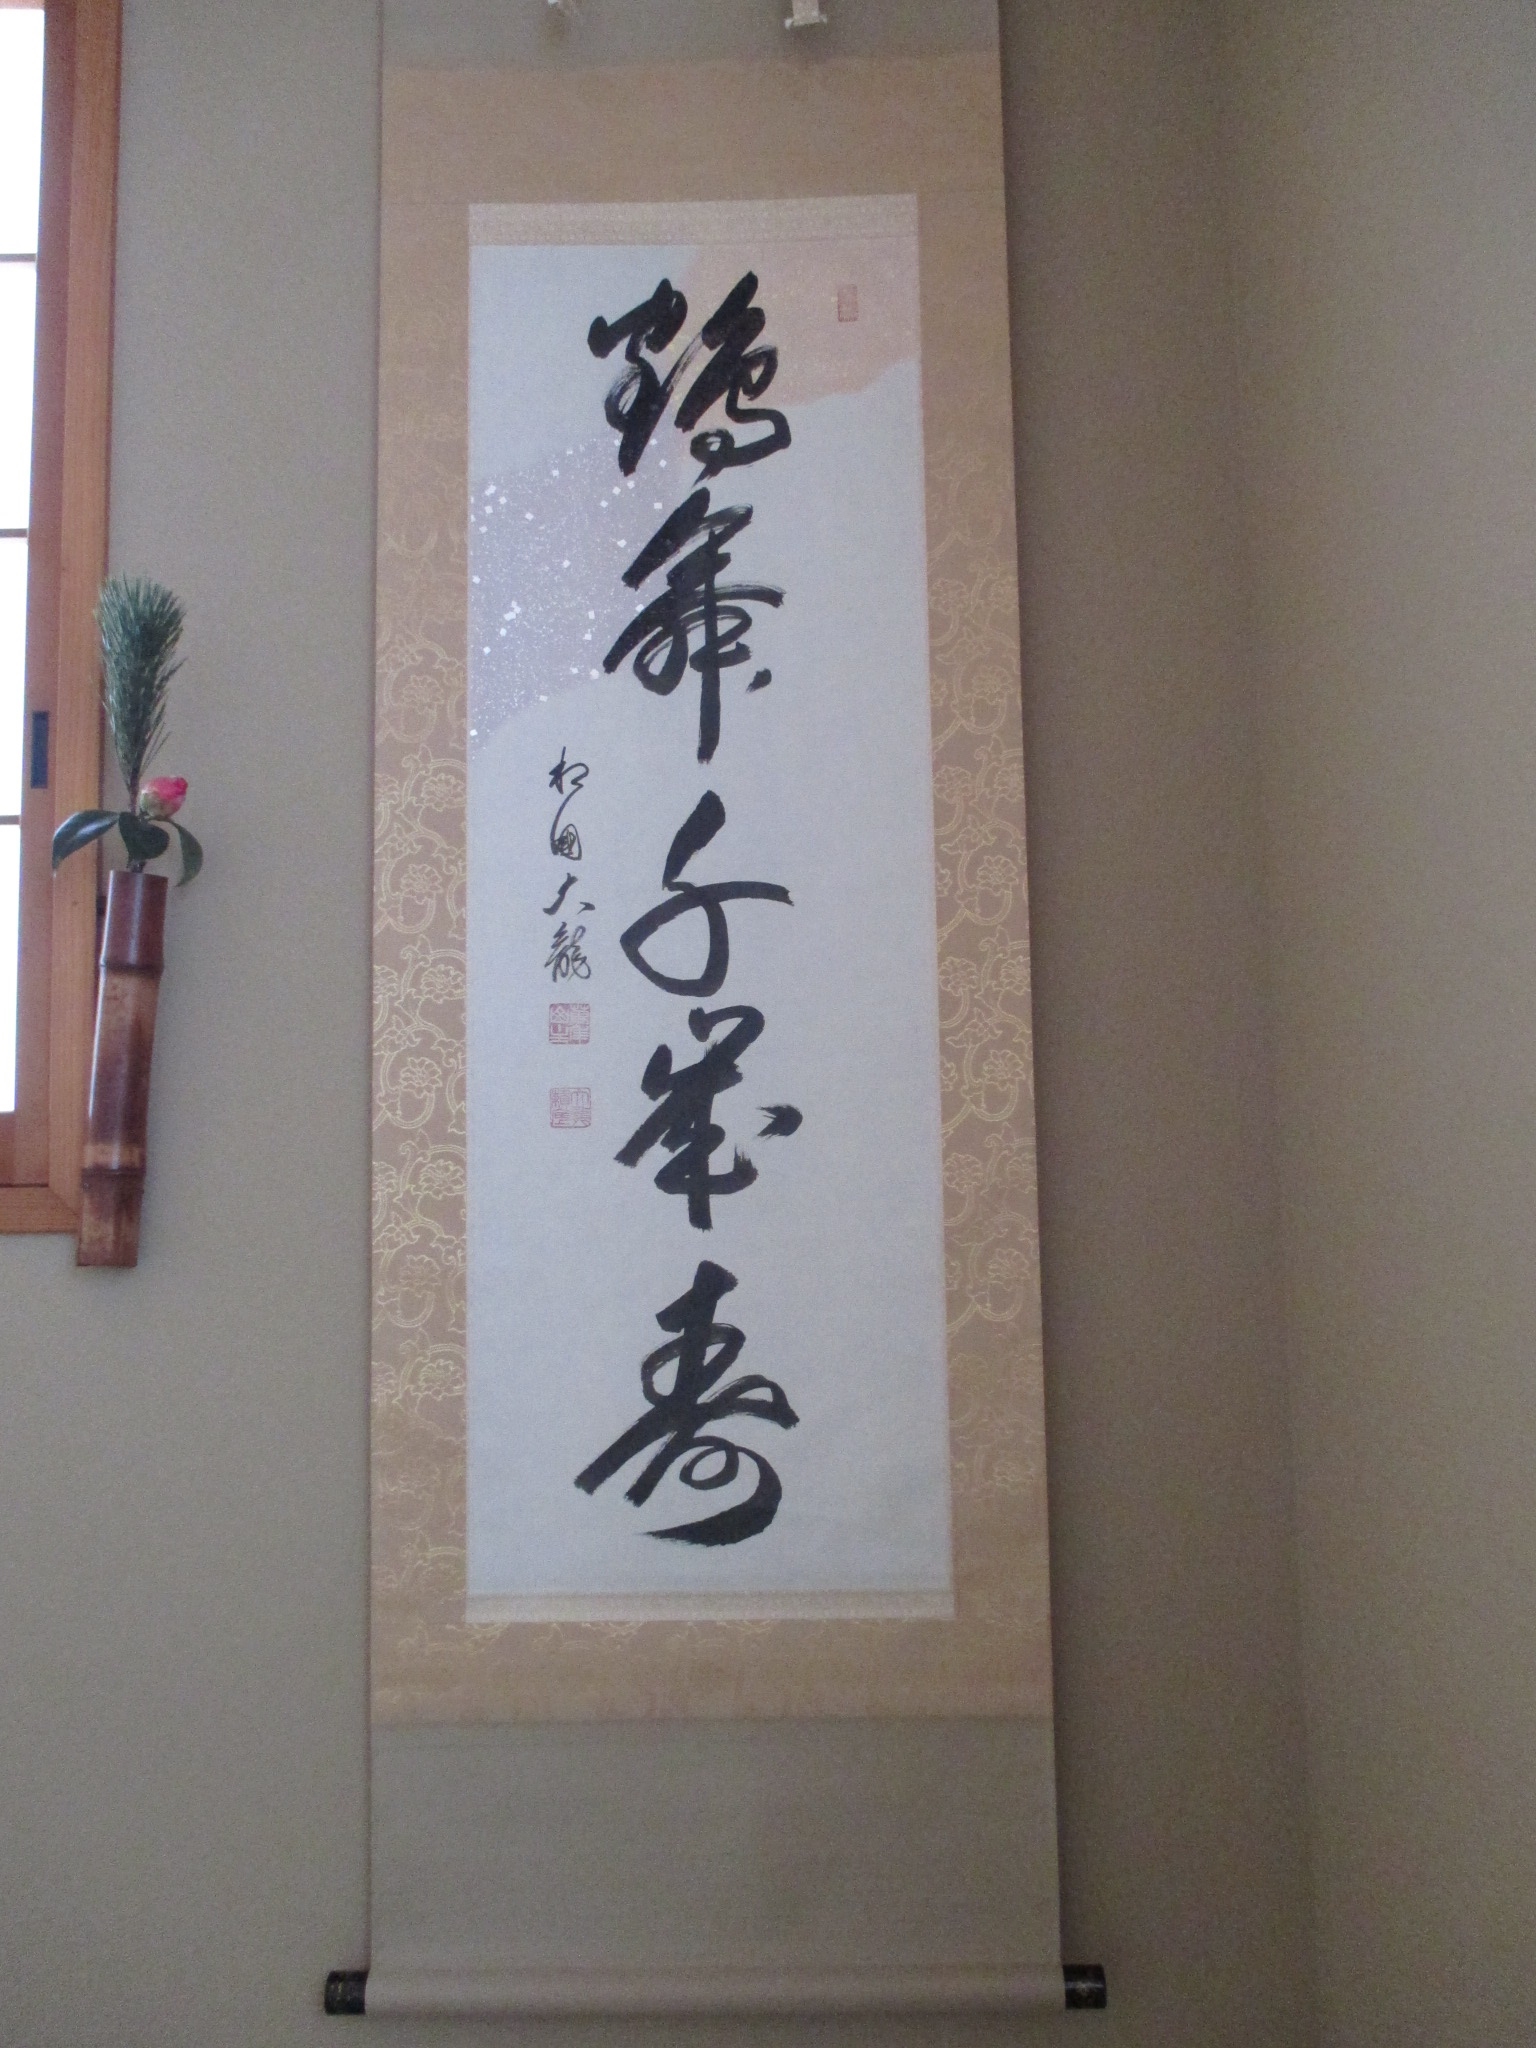 鶴舞千歳寿
相国大龍